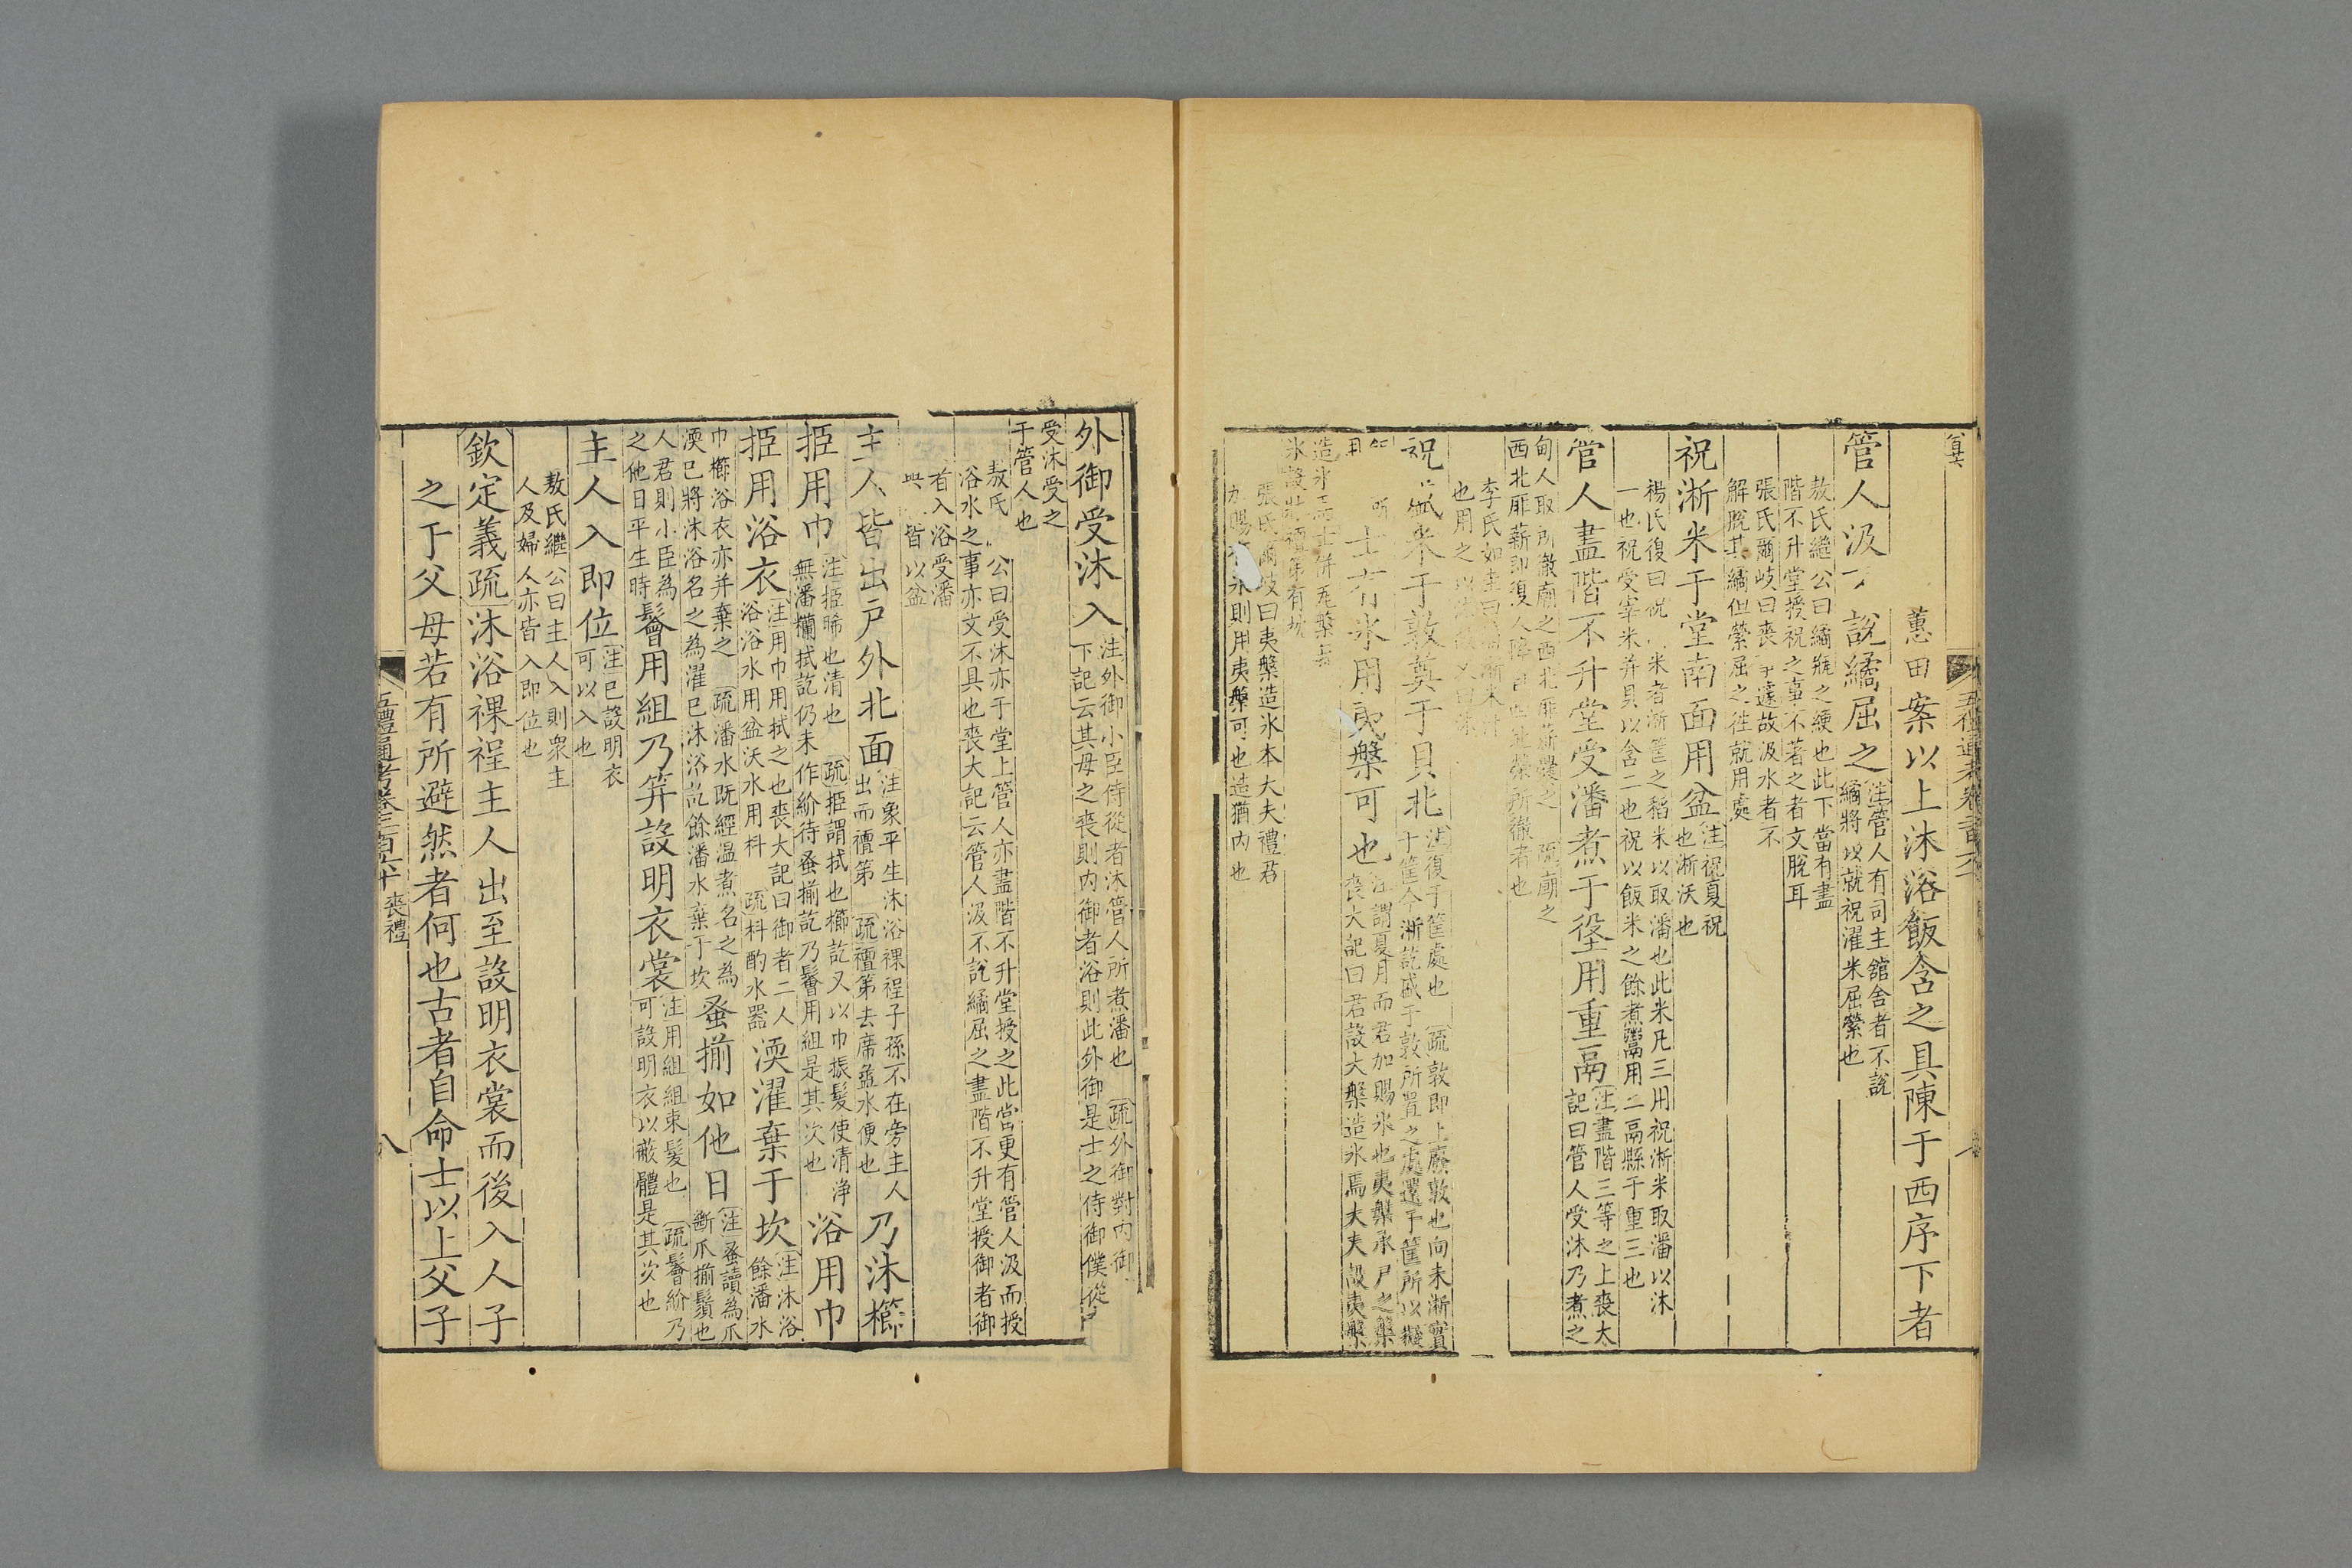 蕙田案以上沐浴飯含之具陳于西序下者
管人汲 說繘屈之注管人有司主館舍者不說
繘將以就祝濯米屈縈也
敖氏繼公曰繘瓶之綆也此下當有盡
階不升堂授祝之事不著之者文脫耳
張氏爾岐曰喪事遽故汲水者不
解脫其繘但縈屈之往就用處
祝淅米于堂南面用盆注祝夏祝
也淅沃也
楊氏復曰 米者淅筐之稻米以取潘也此米凡三用祝淅米取潘以沐
一也祝受宰米并貝以含二也祝以飯米之餘煮鬻用二鬲縣于重三也
管人盡階不升堂受潘煮于垼用重鬲注盡階三等之上喪大
記曰管人受沐乃煮之
甸人取所徹廟之西北厞薪爨之 疏廟之
西北厞薪即復人降自西北榮所徹者也
李氏如圭曰 淅米汁
也用之以沐
祝盛米于敦奠于貝北注復于筐處也 疏敦即上廢敦也向未淅實
于筐今淅訖盛于敦所置之處還于筐所以擬
用
士有冰用夷槃可也注謂夏月而君加賜冰也夷槃承尸之槃
喪大記曰君設大槃造冰焉大夫設夷槃
造冰焉士併瓦槃無
冰設牀襢第有枕
張氏爾岐曰夷槃造冰本大夫禮君
加賜 冰則用夷槃可也造猶内也
外御受沐入注外御小臣侍從者沐管人所煮潘也 疏外御對内御
下記云其母之喪則内御者浴則此外御是士之侍御僕從
受沐受之
于管人也
敖氏 公曰受沐亦于堂上管人亦盡階不升堂授之此當更有管人汲而授
浴水之事亦文不具也喪大記云管人汲不說繘屈之盡階不升堂授御者御
者入浴受潘
與 皆以盆
主人皆出戶外北面注象平生沐浴裸裎子孫不在旁主人
出而襢第 疏襢第去席盝水便也
乃沐櫛
挋用巾注挋晞也清也 疏挋謂拭也櫛訖又以巾振髮使清淨
無潘㶕拭訖仍未作紒待蚤揃訖乃鬠用組是其次也
浴用巾
挋用浴衣注用巾用拭之也喪大記曰御者二人
浴浴水用盆沃水用枓 疏枓酌水器
渜濯棄于坎注沐浴
餘潘水
巾櫛浴衣亦并棄之 疏潘水既經溫煮名之為
渜已將沐浴名之為濯已沐浴訖餘潘水棄于坎
蚤揃如他日注蚤讀為爪
斷爪揃鬚也
人君則小臣為
之他日平生時
鬠用組乃筓設明衣裳注用組組束髮也 疏鬠紒乃
可設明衣以蔽體是其次也
主人入即位注已設明衣
可以入也
敖氏繼公曰主人入則衆主
人及婦人亦皆入即位也
欽定義疏沐浴裸裎主人出至設明衣裳而後入人子
之于父母若有所避然者何也古者自命士以上父子
五禮通考卷二百六十 喪禮
八